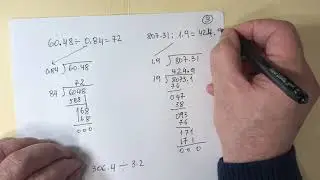 ③
60.48 ÷ 0.84 = 72
0.84 ⟌ 60.48
72
84 ⟌ 6048
588
168
168
000
807.31 : 1.9 = 424.9
1.9 ⟌ 807.31
424.9
19 ⟌ 8073.1
76
047
38
093
76
171
171
000
306.4 ÷ 3.2